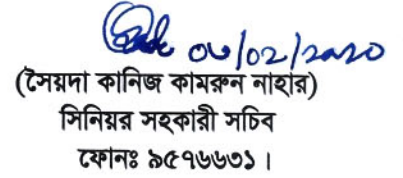 ০৬/০২/২০২০
(সৈয়দা কানিজ কামরুন নাহার)
সিনিয়র সহকারী সচিব
ফোনঃ ৯৫৭৬৬৩১ ।